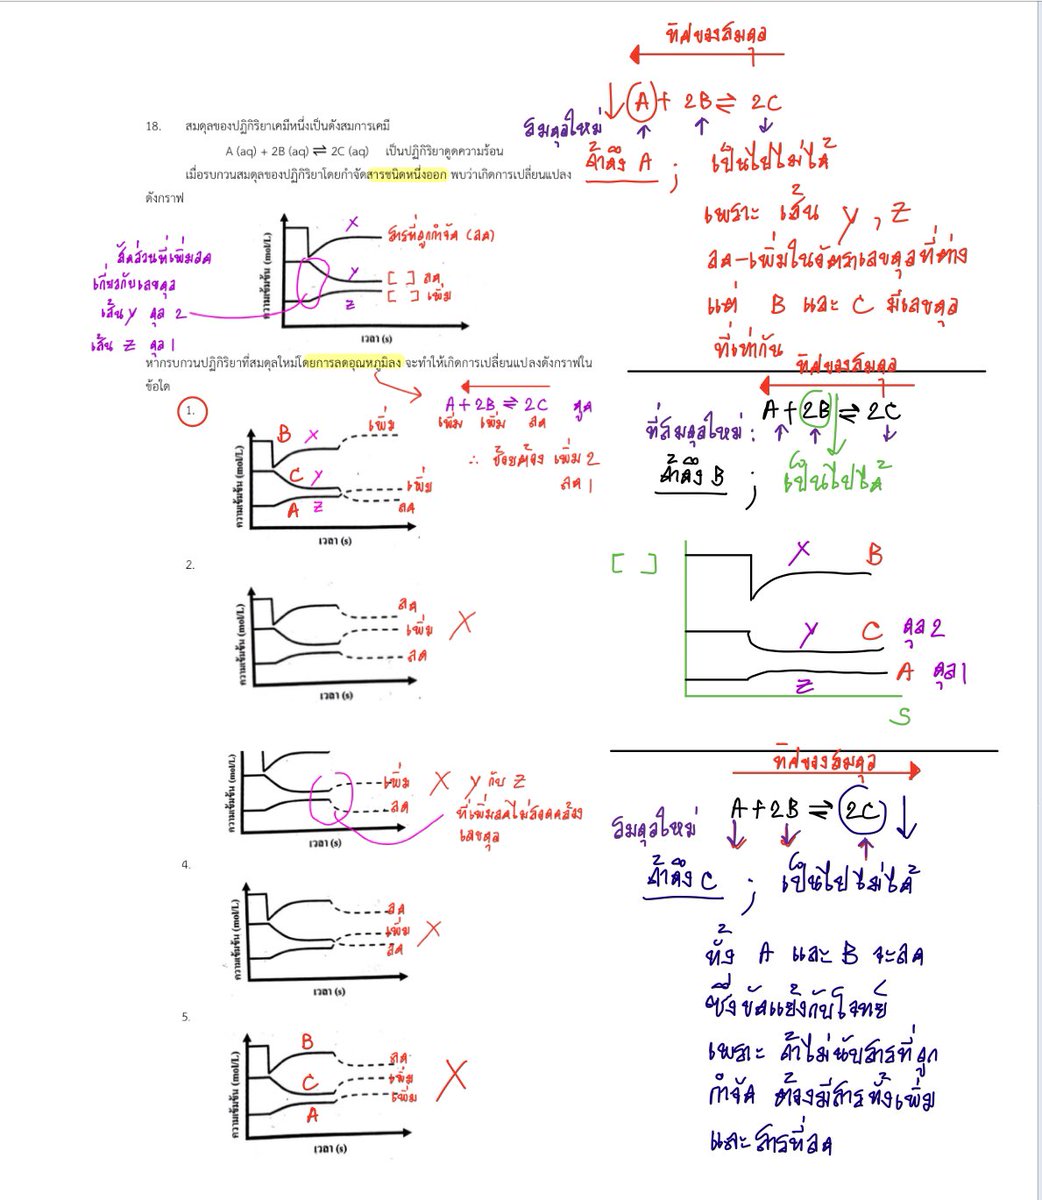 ทิศของสมดุล
A + 2B ⇌ 2C
สมดุลใหม่
ถ้าดึง A ; เป็นไปไม่ได้
เพราะ เส้น y , z
ลด-เพิ่มในอัตราเลขดุลที่ต่าง
แต่ B และ C มีเลขดุล
ที่เท่ากัน
18. สมดุลของปฏิกิริยาเคมีหนึ่งเป็นดังสมการเคมี
A (aq) + 2B (aq) ⇌ 2C (aq) เป็นปฏิกิริยาดูดความร้อน
เมื่อรบกวนสมดุลของปฏิกิริยาโดยกำจัดสารชนิดหนึ่งออก พบว่าเกิดการเปลี่ยนแปลง
ดังกราฟ
ความเข้มข้น (mol/L)
X
สารที่ถูกกำจัด (ลด)
y [ ] ลด
Z [ ] เพิ่ม
เวลา (s)
สัดส่วนที่เพิ่มลด
เกี่ยวกับเลขดุล
เส้น y ดุล 2
เส้น z ดุล 1
หากรบกวนปฏิกิริยาที่สมดุลใหม่โดยการลดอุณหภูมิลง จะทำให้เกิดการเปลี่ยนแปลงดังกราฟใน
ข้อใด
A + 2B ⇌ 2C ดูด
เพิ่ม เพิ่ม ลด
∴ ข้อยต้อง เพิ่ม 2
ลด 1
1.
ความเข้มข้น (mol/L)
B X เพิ่ม
C y เพิ่ม
A Z ลด
เวลา (s)
ทิศของสมดุล
A + 2B ⇌ 2C
ที่สมดุลใหม่ :
ถ้าดึง B ; เป็นไปได้
[ ]
X B
y C ดุล 2
Z A ดุล 1
S
2.
ความเข้มข้น (mol/L)
ลด
เพิ่ม X
ลด
เวลา (s)
ความเข้มข้น (mol/L)
เพิ่ม X y กับ z
ลด ที่เพิ่มลดไม่สอดคล้อง
เลขดุล
เวลา (s)
ทิศของสมดุล
A + 2B ⇌ 2C
สมดุลใหม่
ถ้าดึง C ; เป็นไปไม่ได้
ทั้ง A และ B จะลด
ซึ่งขัดแย้งกับโจทย์
เพราะ ถ้าไม่นับสารที่ถูก
กำจัด ต้องมีสารทั้งเพิ่ม
และสารที่ลด
4.
ความเข้มข้น (mol/L)
ลด
เพิ่ม X
ลด
เวลา (s)
5.
ความเข้มข้น (mol/L)
B ลด
C เพิ่ม X
A เพิ่ม
เวลา (s)